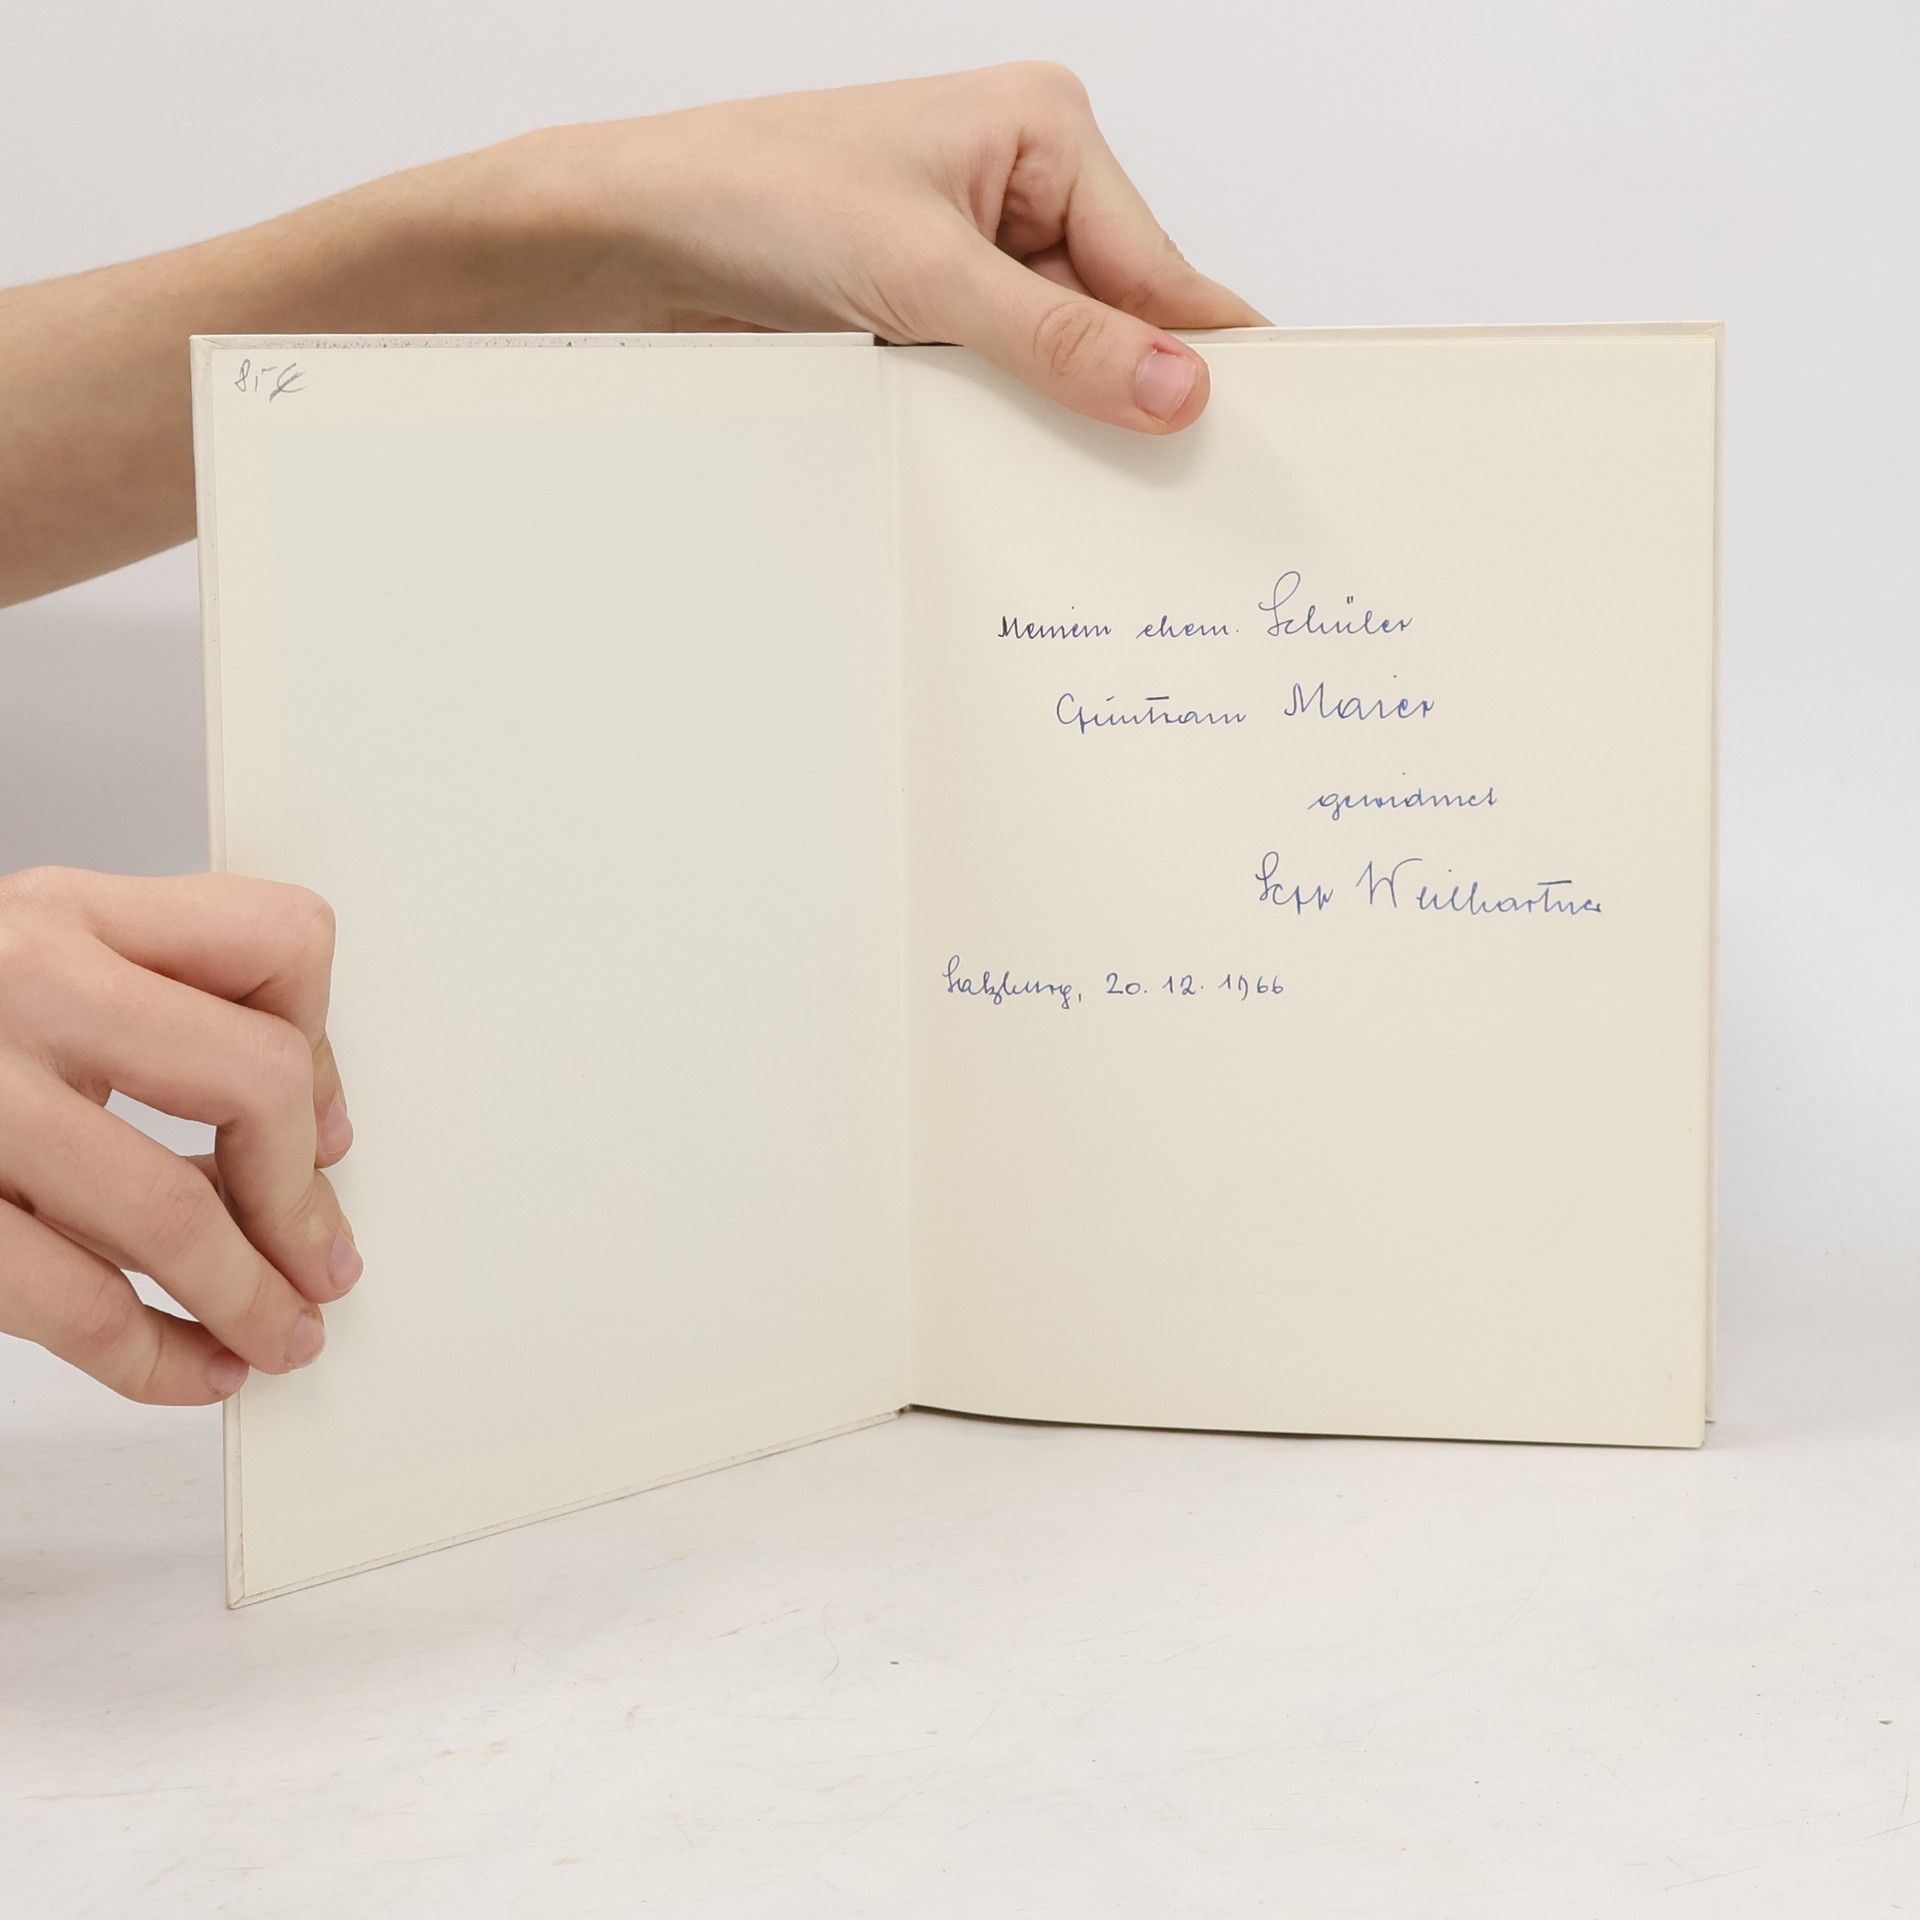 8,- €
Meinem ehem. Schüler
Guntram Maier
gewidmet
Sepp Weilhartner
Salzburg, 20. 12. 1966